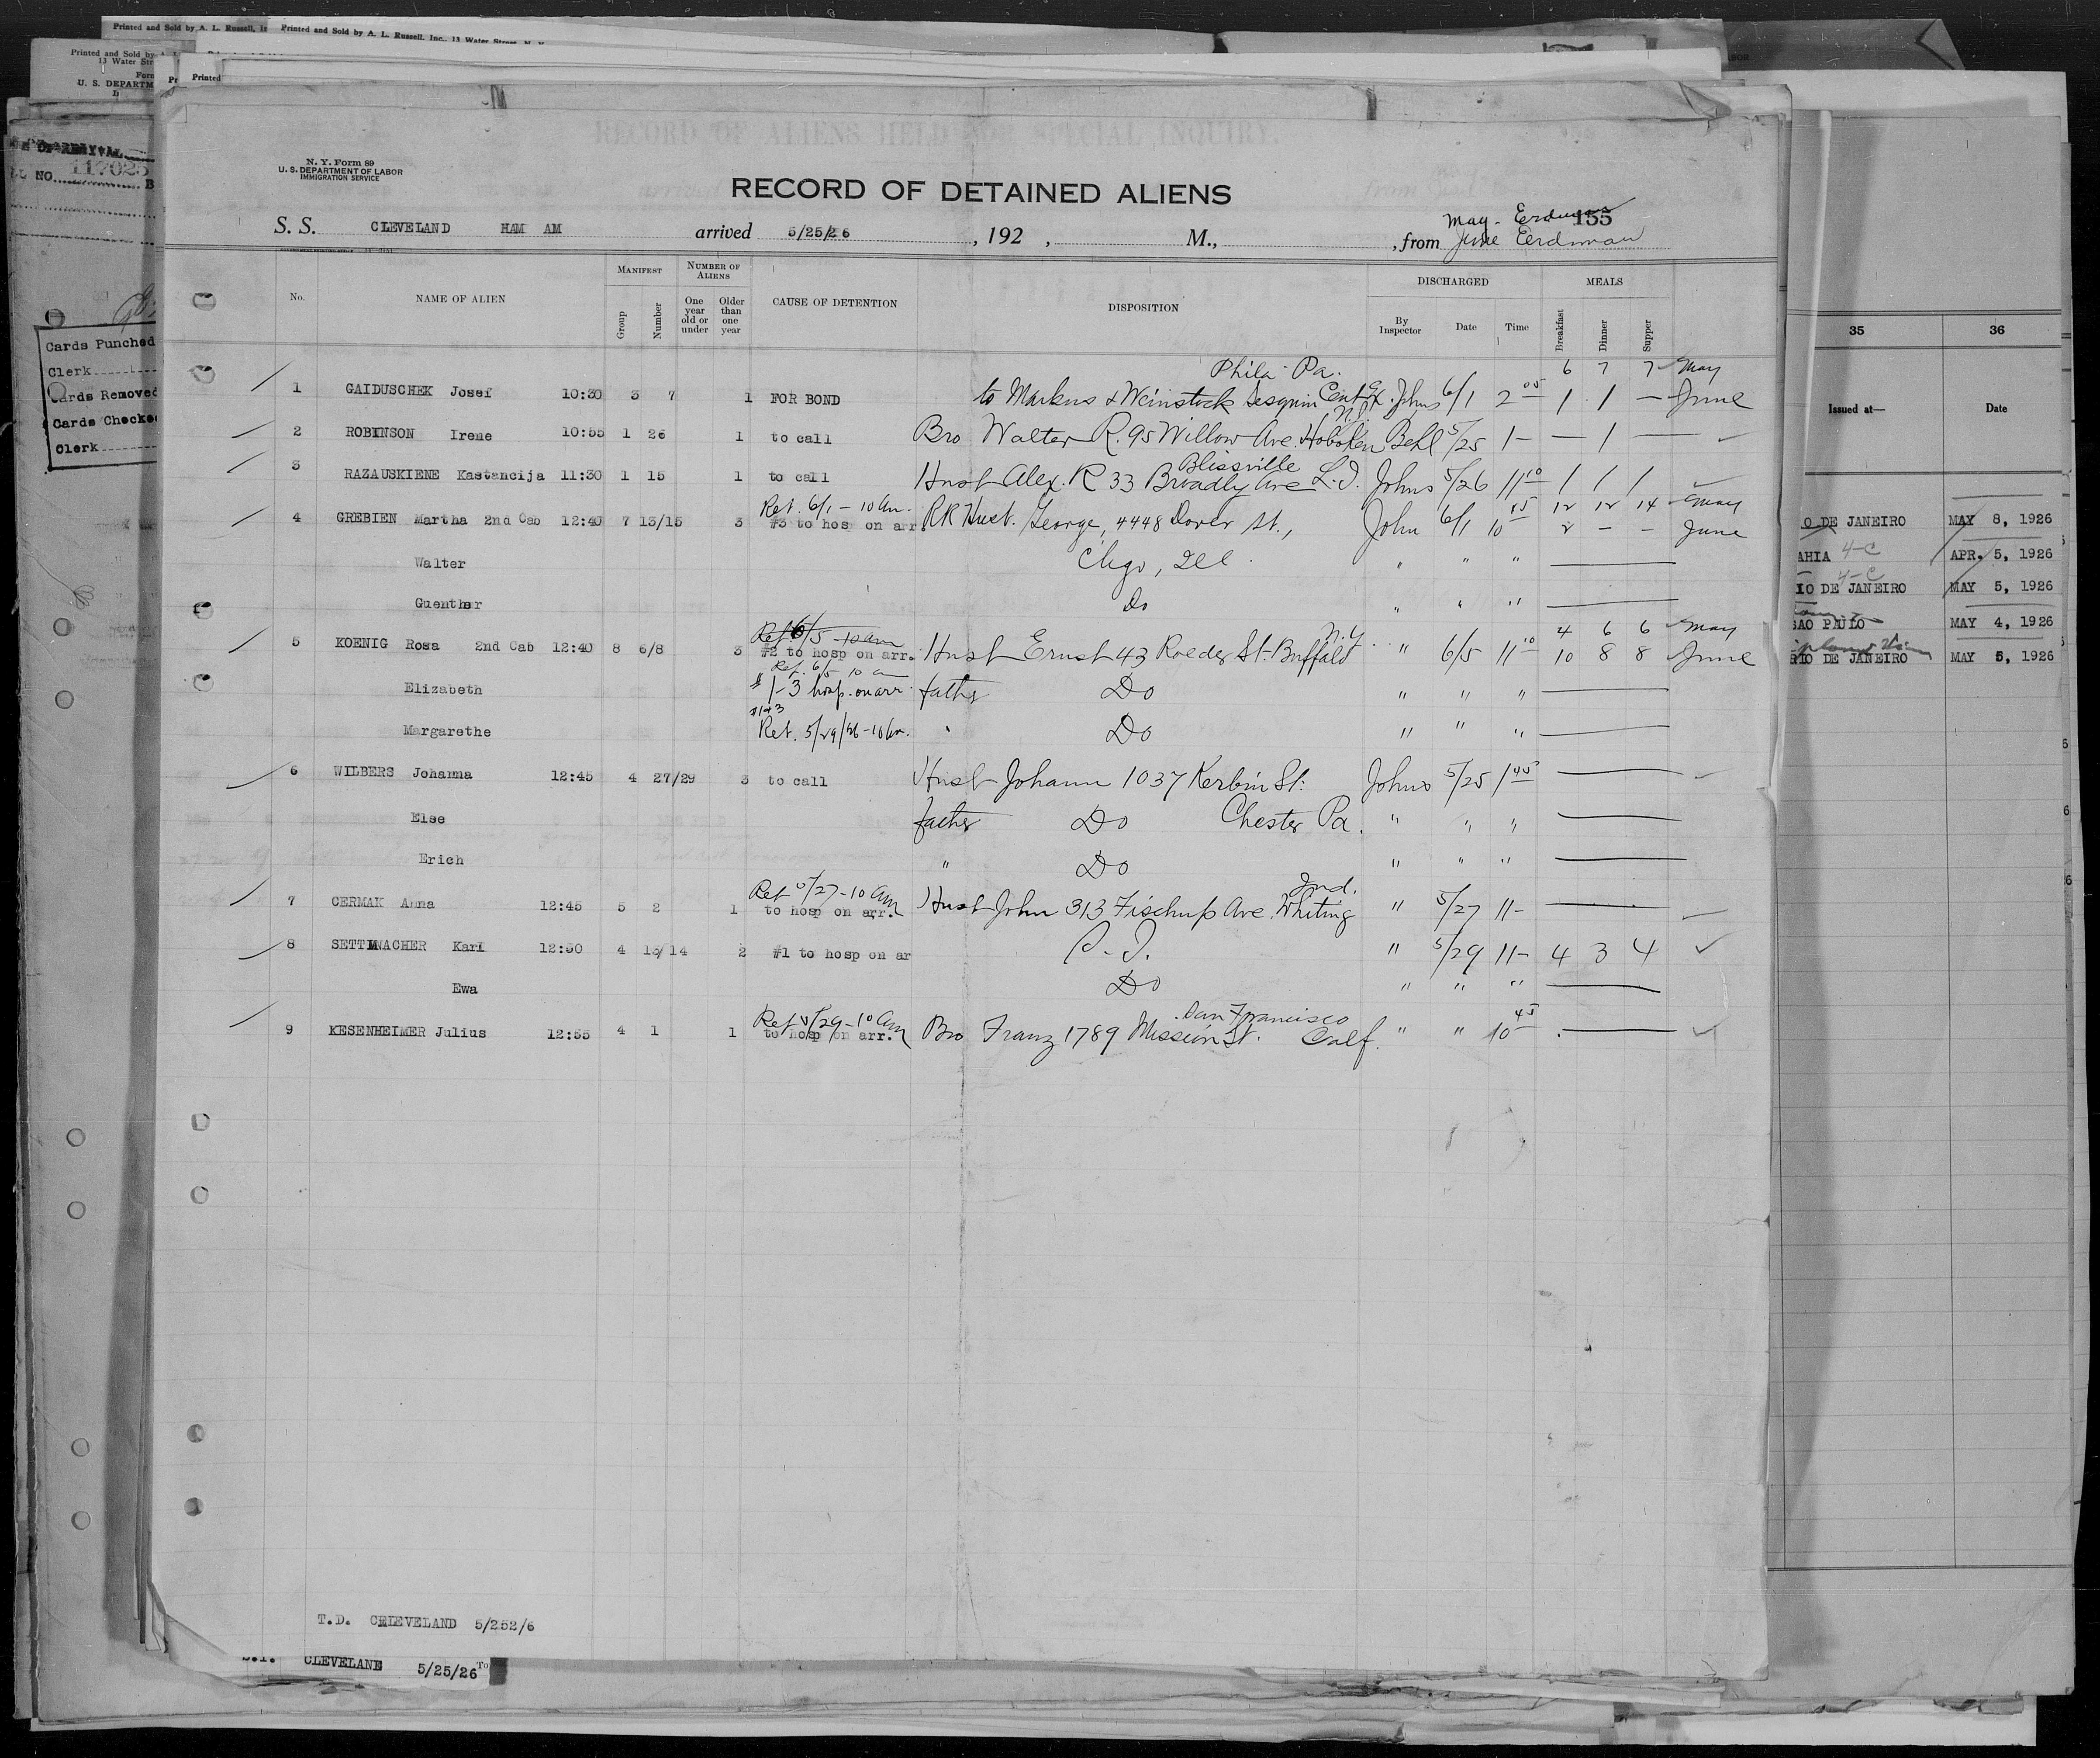 Printed and Sold by A. L. Russell, In
Printed and Sold by A. L. Russell, Inc., 13 Water Street, N. Y.
Printed and Sold by A.
13 Water Str
Form
U. S. DEPARTM
Printed
OF ARRIVAL
NO. 117025 B
Cards Punched
Clerk
Cards Removed
Cards Checked
Clerk
N. Y. Form 89
U. S. DEPARTMENT OF LABOR
IMMIGRATION SERVICE
RECORD OF ALIENS HELD FOR SPECIAL INQUIRY.
RECORD OF DETAINED ALIENS
155
May - Erdman
S. S. CLEVELAND HAM AM arrived 5/25/26, 192 , M., , from June Eerdman
No. NAME OF ALIEN MANIFEST Group Number NUMBER OF ALIENS One year old or under Older than one year CAUSE OF DETENTION DISPOSITION DISCHARGED By Inspector Date Time MEALS Breakfast Dinner Supper
Phila Pa. 6 7 7 May
1 GAIDUSCHEK Josef 10:30 3 7 1 FOR BOND to Markus & Weinstock Sesquin Cent Ex. Johns 6/1 2 05 1 1 — June
N.J.
2 ROBINSON Irene 10:55 1 26 1 to call Bro Walter R. 95 Willow Ave. Hoboken Behl 5/25 1— — 1 —
Blissville
3 RAZAUSKIENE Kastancija 11:30 1 15 1 to call Husb Alex. R 33 Bradly Ave L.I. Johns 5/26 11 10 1 1 1
Ret. 6/1 - 10 am. 12 12 14 May
4 GREBIEN Martha 2nd Cab 12:40 7 13/15 3 #3 to hos on arr RR Husb. George, 4448 Dover St., John 6/1 10 45 2 — — June
Walter Chgo, Ill. " " "
Guenther Do " " "
Ret. 6/5 - 10 am N.Y. 4 6 6 May
5 KOENIG Rosa 2nd Cab 12:40 8 6/8 3 #2 to hosp on arr. Husb Ernst 43 Roeder St. Buffalo " 6/5 11 10 10 8 8 June
Ret. 6/5 10 am
Elizabeth # 1-3 hosp. on arr. father Do " " "
#1+3
Margarethe Ret. 5/29/26 - 10 am. " Do " " "
6 WILBERS Johanna 12:45 4 27/29 3 to call Husb Johann 1037 Kerbin St. Johns 5/25 1 45 —
Else father Do Chester Pa. " " " —
Erich " Do " " " —
Ret 5/27 - 10 am Ind.
7 CERMAK Anna 12:45 5 2 1 to hosp on arr. Husb John 313 Fischrup Ave. Whiting " 5/27 11 — —
8 SETTMNACHER Karl 12:50 4 13/14 2 #1 to hosp on ar S.I. " 5/29 11 — 4 3 4
Ewa Do " " " —
Ret 5/29 - 10 am San Francisco
9 KESENHEIMER Julius 12:55 4 1 1 to hosp on arr. Bro Franz 1789 Mission St. Calf. " " 10 45 —
T.D. CLEVELAND 5/252/6
S.I. CLEVELAND 5/25/26
35 36
Issued at— Date
O DE JANEIRO MAY 8, 1926
AHIA 4-C APR. 5, 1926
4-C
IO DE JANEIRO MAY 5, 1926
SAO PAULO MAY 4, 1926
RIO DE JANEIRO MAY 5, 1926